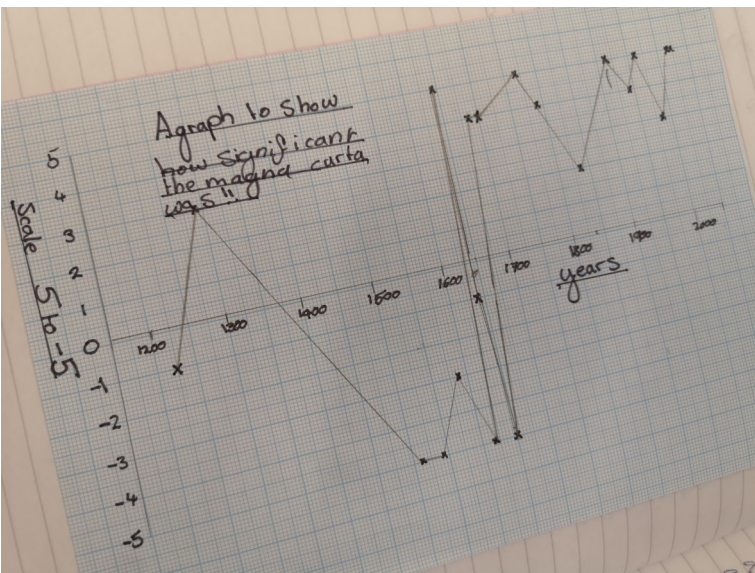 Agraph to show
how significant
the magna carta
was"!
5
4
3
2
1
0
-1
-2
-3
-4
-5
Scale 5 to -5
1200
1300
1400
1500
1600
1700
1800
1900
2000
years